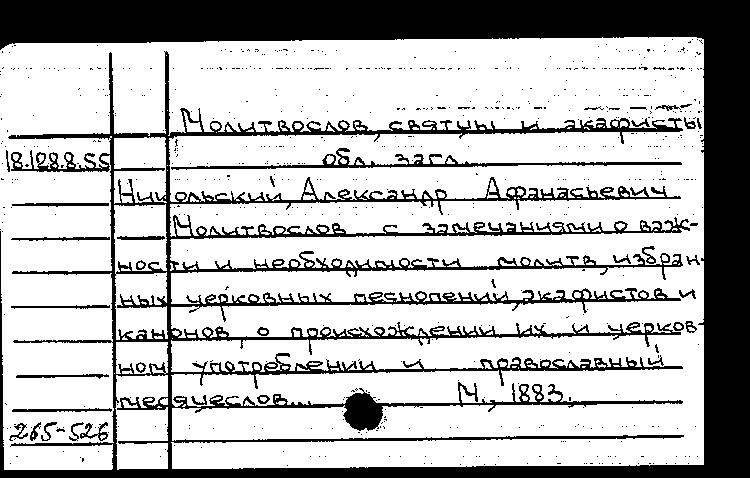 Молитвослов, святцы и акафисты
18.128.8.55 обл. загл.
Никольский, Александр Афанасьевич
Молитвослов с замечаниями о важ-
ности и необходимости молитв, избран-
ных церковных песнопений, акафистов и
канонов, о происхождении их и церков-
ном употреблении и православный
месяцеслов... М., 1883.
265-526